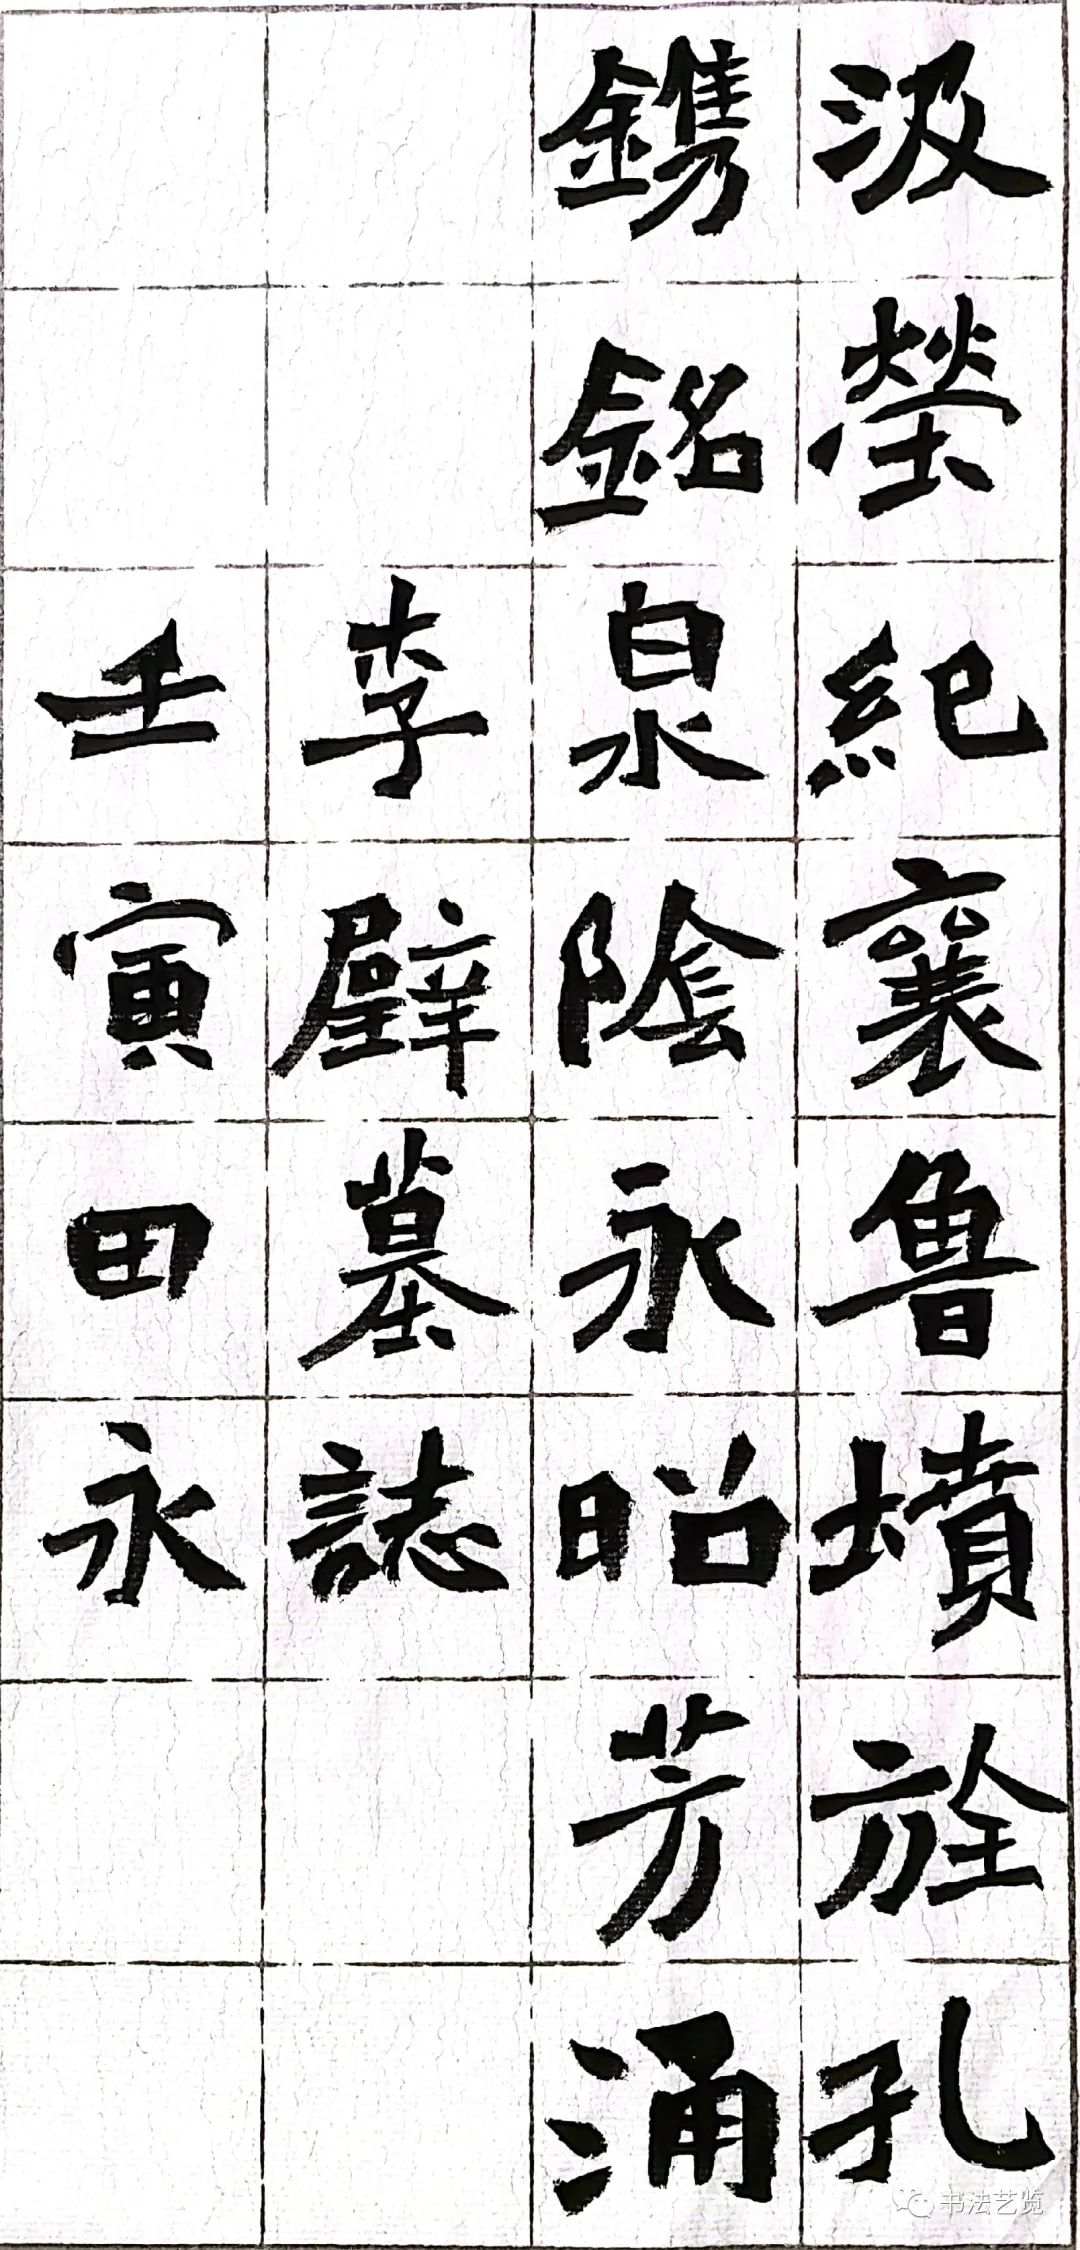 汲塋紀襄魯墳旌孔
鐫銘泉陰永昭芳涌
李壁墓誌
壬寅田永
书法艺览